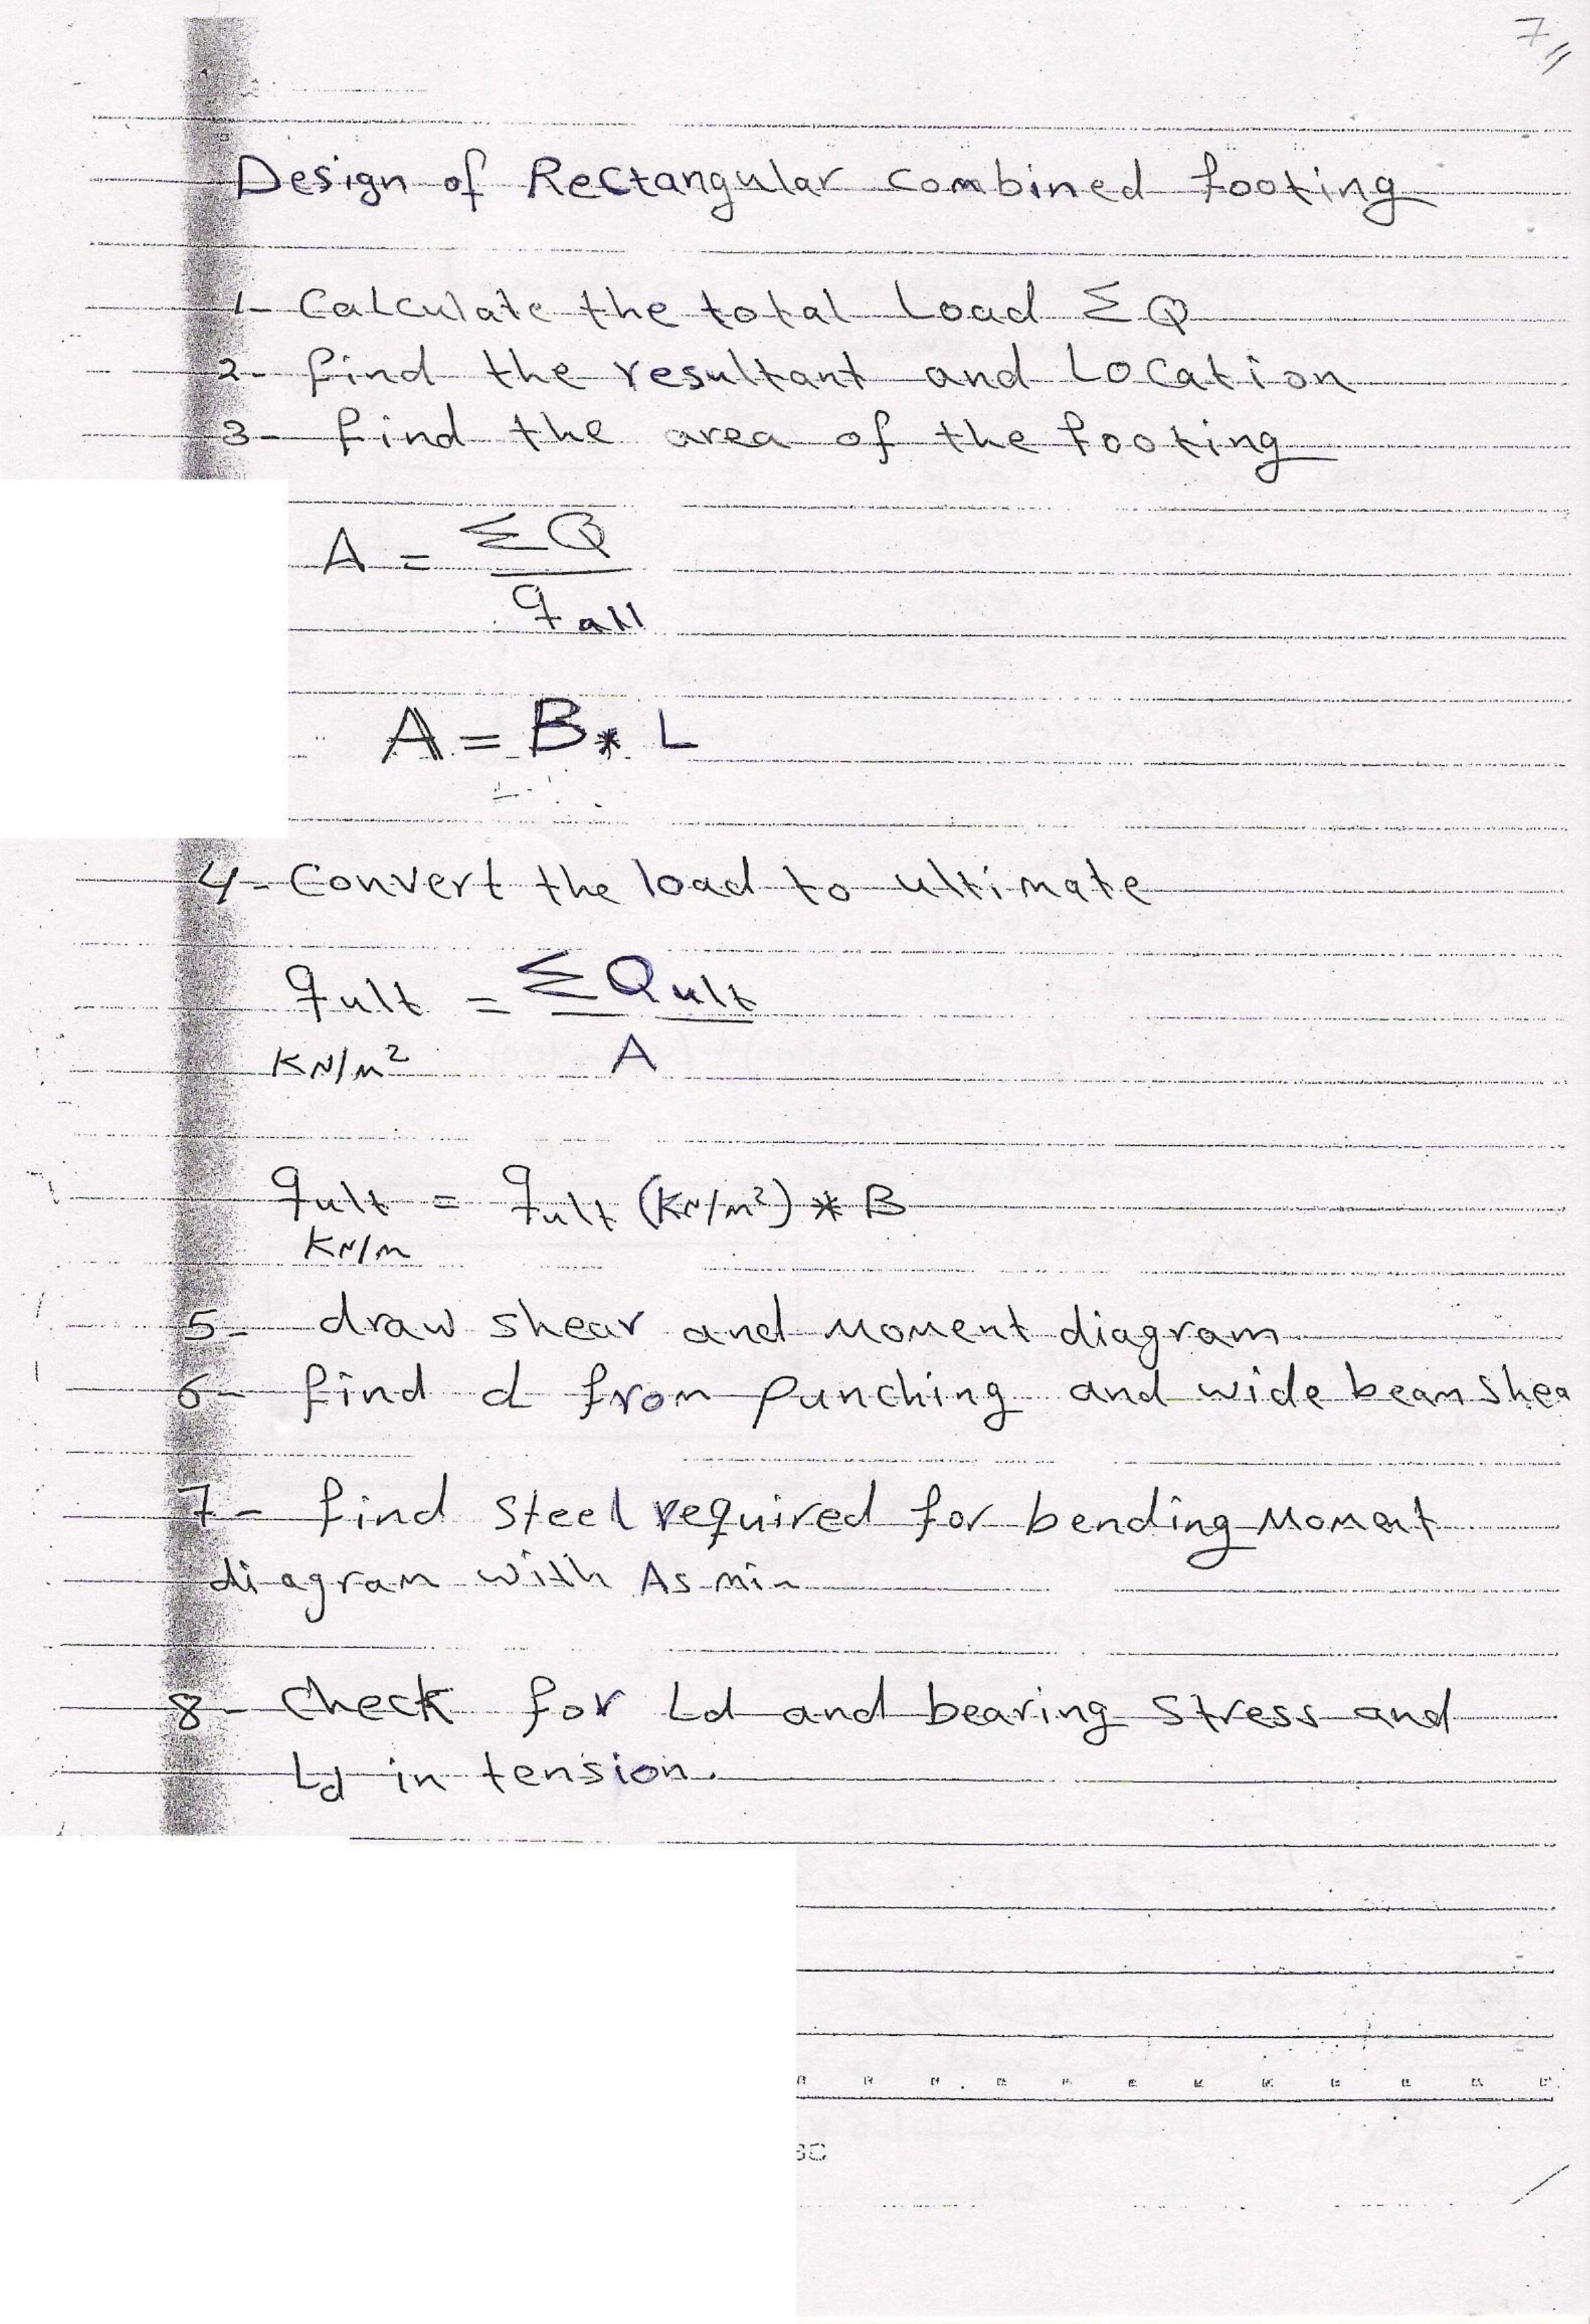 7
Design of Rectangular combined footing
1- Calculate the total Load ΣQ
2- find the resultant and Location
3- find the area of the footing
A = ΣQ / qall
A = B * L
4- Convert the load to ultimate
qult = ΣQult / A
KN/m²
qult = qult (KN/m²) * B
KN/m
5- draw shear and Moment diagram
6- find d from Punching and wide beam shea
7- find steel required for bending Moment
diagram with As min
8- Check for Ld and bearing stress and
Ld in tension.